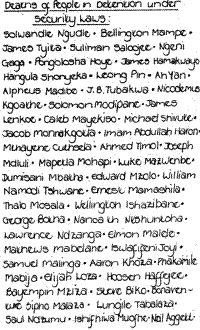 Deaths of People in Detention under
Security Laws:
Solwandle Ngudle • Bellington Mampe •
James Tyita • Suliman Saloojee • Ngeni
Gaga • Pongolosha Hoye • James Hamakwayo
Hangula Shonyeka • Leong Pin • Ah Yan •
Alpheus Madibe • J.B. Tubakwe • Nicodemus
Kgoathe • Solomon Modipane • James
Lenkoe • Caleb Mayekiso • Michael Shivute •
Jacob Monnakgotla • Imam Abdullah Haron •
Mthayene Cuthsela • Ahmed Timol • Joseph
Mdluli • Mapetla Mohapi • Luke Mazwembe •
Dumisani Mbatha • Edward Mzolo • William
Namodi Tshwane • Ernest Mamashila •
Thalo Mosala • Wellington Tshazibane •
George Botha • Nanaoth Ntshuntsha •
Lawrence Ndzanga • Elmon Malele •
Mathews Mabelane • Twalifeni Joyi •
Samuel Malinga • Aaron Khoza • Phakamile
Mabija • Elijah Loza • Hoosen Haffejee •
Bayempin Mzizi • Steve Biko • Bonaven-
ture Sipho Malaza • Lungile Tabalaza •
Saul Ndzumu • Tshifhiwa Muofhe • Neil Aggett